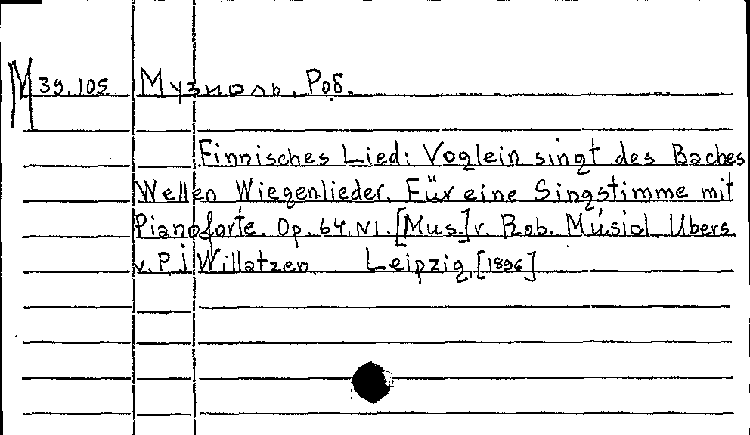 M 39.105 Музиоль, Роб.
Finnisches Lied: Voglein singt des Baches
Wellen Wiegenlieder. Für eine Singstimme mit
Pianoforte. Op. 64, N1. [Mus.] v. Rob. Musiol Ubers
v. P. J Willatzen Leipzig, [1896]